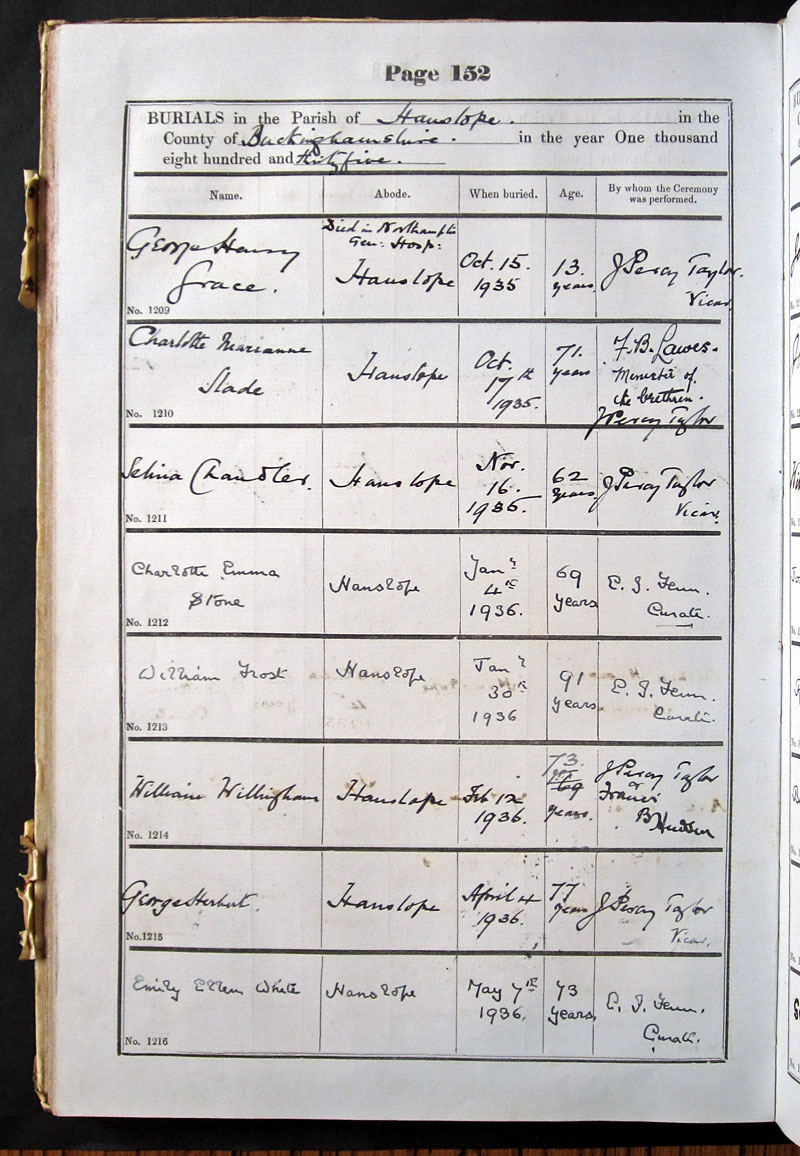 Page 152
BURIALS in the Parish of Hanslope. in the
County of Buckinghamshire. in the year One thousand
eight hundred and thirty five.
Name. Abode. When buried. Age. By whom the Ceremony was performed.
Died in Northampton
Gen: Hosp:
George Henry
Grace. Hanslope Oct. 15. 1935 13. years. J Percy Taylor.
Vicar.
No. 1209
Charlotte Marianne
Slade Hanslope Oct. 17th 1935. 71. years F. B. Lawes.
Minister of
the brethren.
J Percy Taylor
No. 1210
Selina Chandler. Hanslope Nov. 16. 1935. 62 years. J Percy Taylor
Vicar.
No. 1211
Charlotte Emma
Stone Hanslope Jany 4th 1936. 69 years E. J. Fenn.
Curate.
No. 1212
William Frost Hanslope Jany 30th 1936 91 years E. J. Fenn.
Curate.
No. 1213
William Willingham Hanslope Feb 12 1936. 73. 69 years. J Percy Taylor
or
Francis
B Hudson
No. 1214
George Herbert. Hanslope April 4 1936. 77 years J Percy Taylor
Vicar.
No. 1215
Emily Ellen White Hanslope May 7th 1936. 73 years. E. J. Fenn.
Curate.
No. 1216